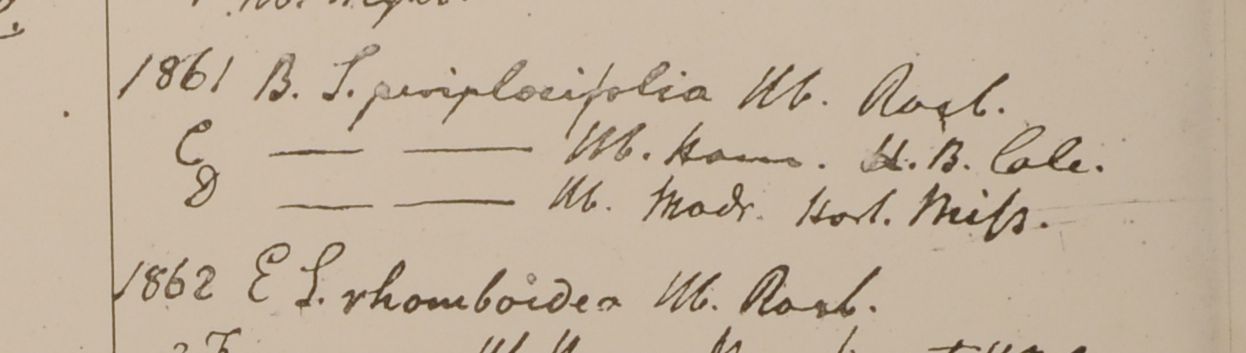 1861 B. S. periplocifolia Hb. Roxb.
C — — Hb. Ham. H. B. Calc.
D — — Hb. Madr. Hort. Miss.
1862 E S. rhomboidea Hb. Roxb.